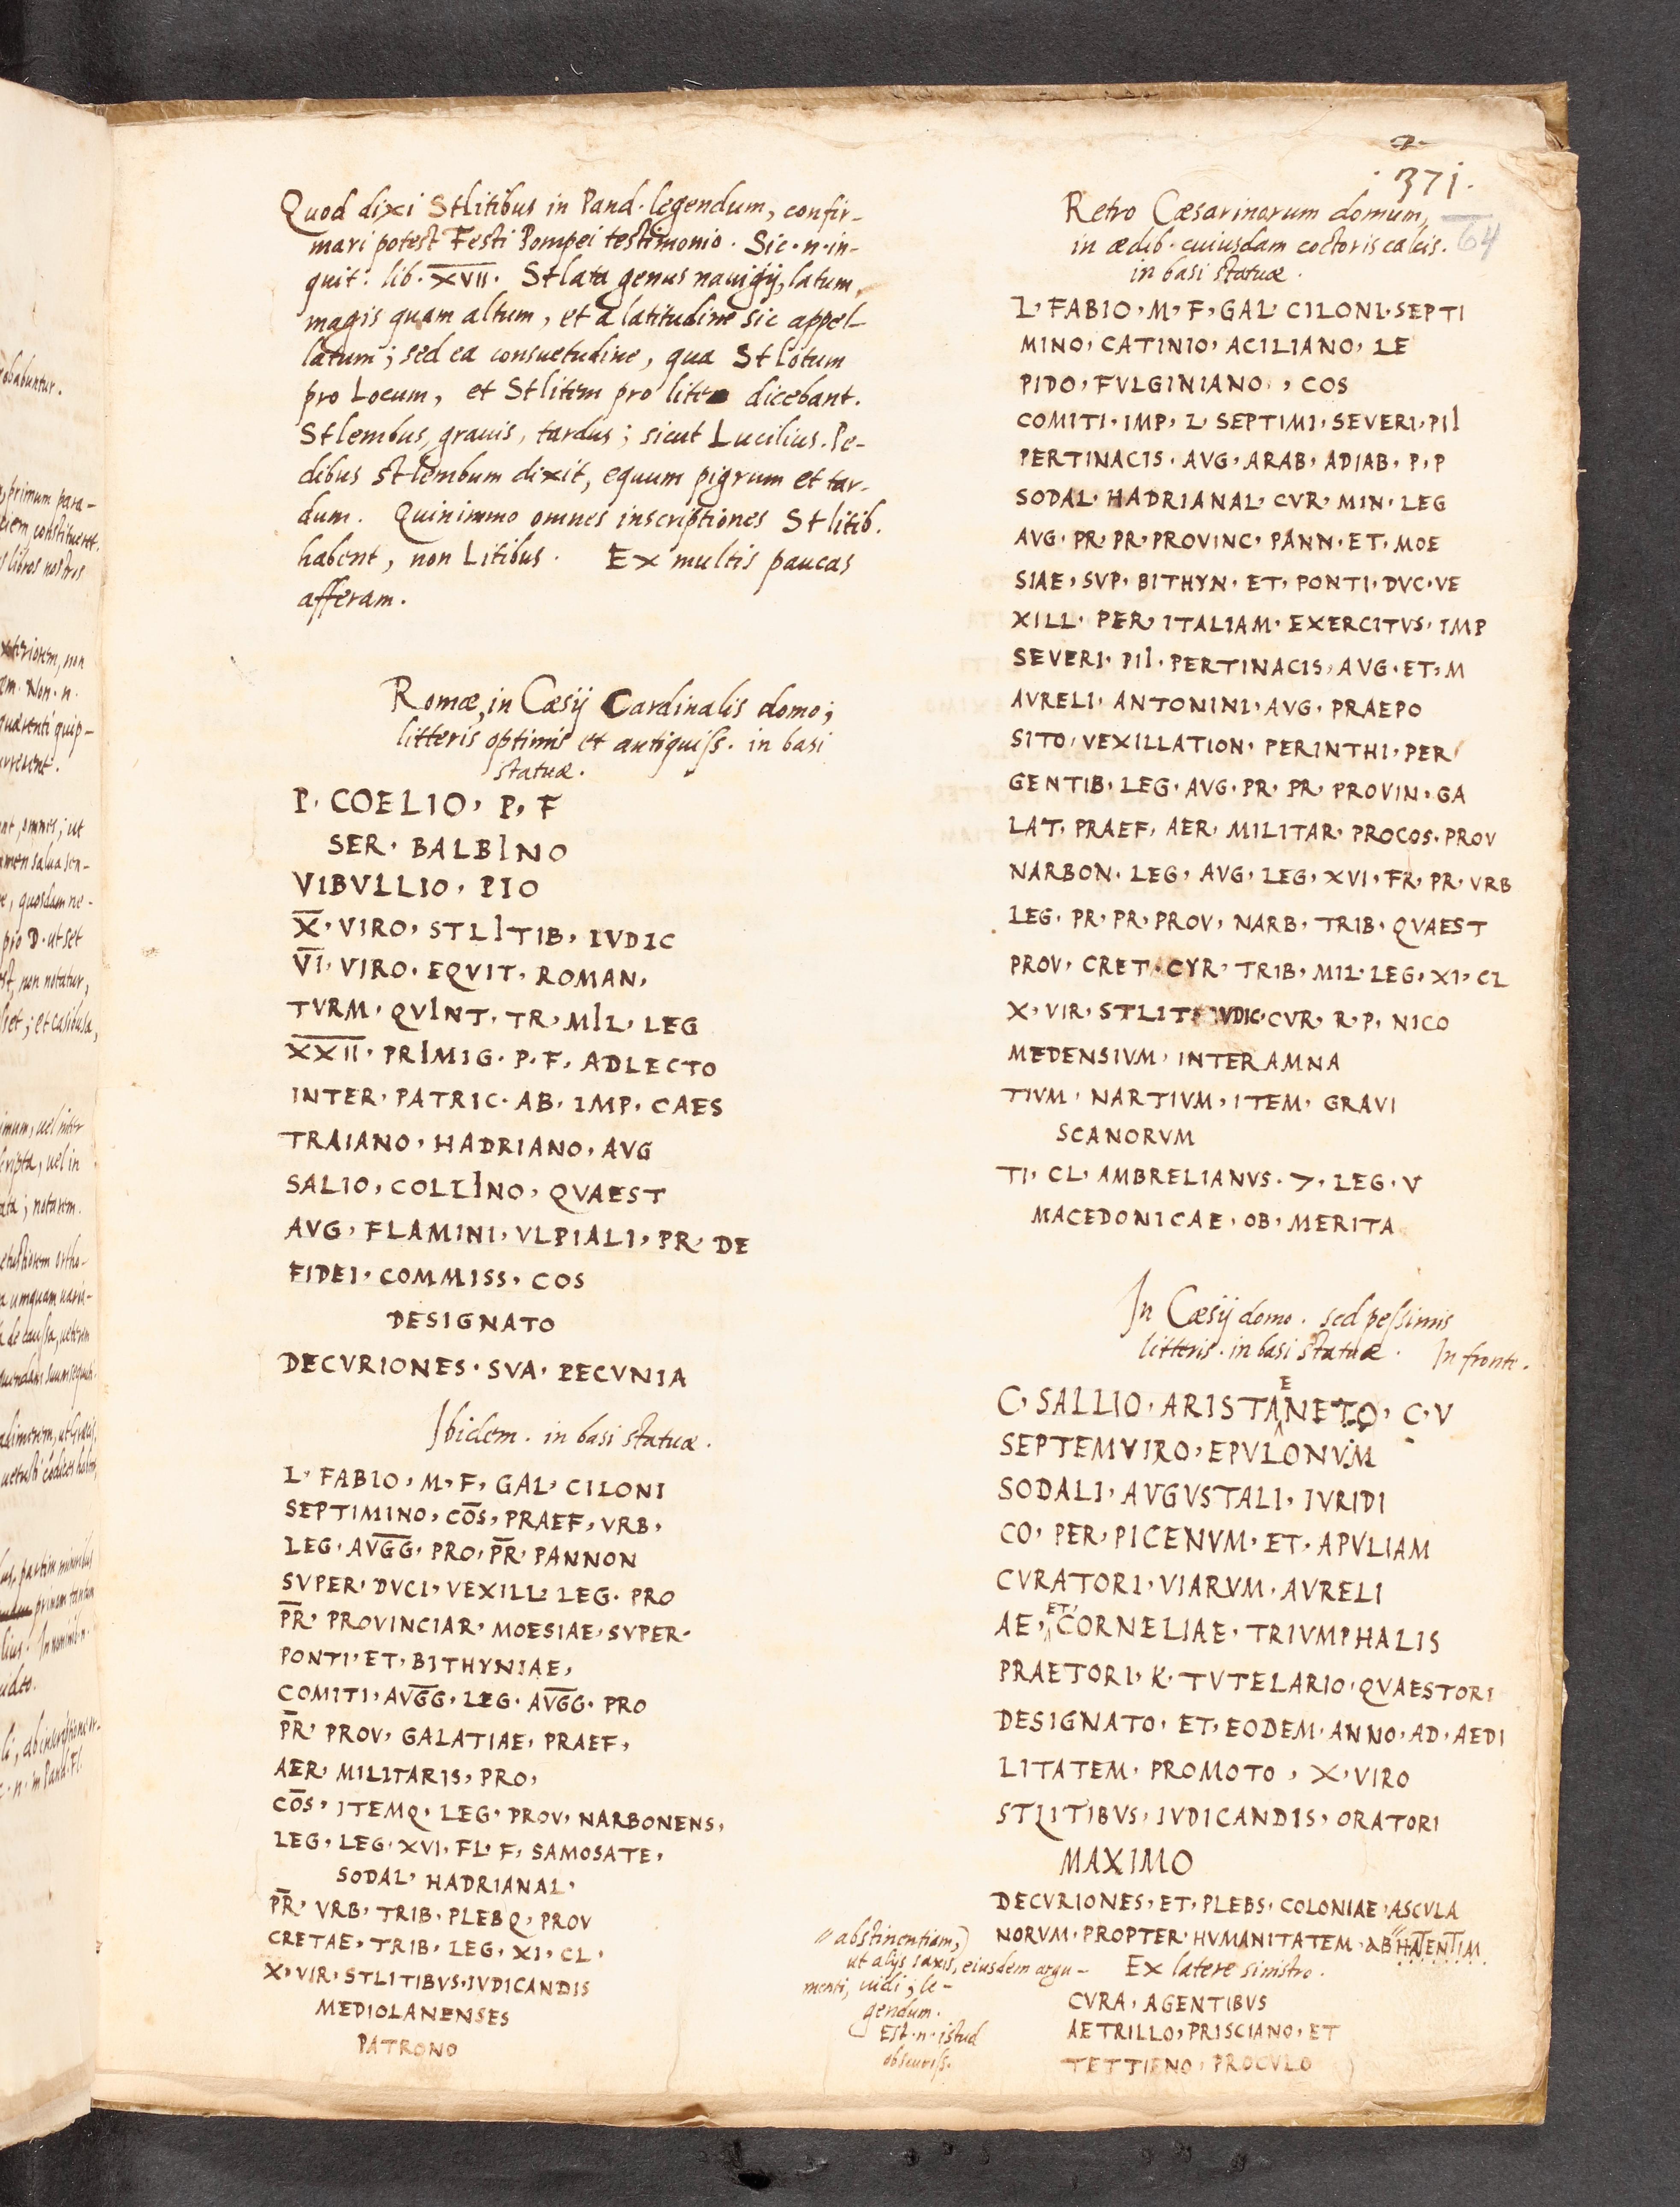 Quod dixi Stlitibus in Pand. legendum, confir-
mari potest Festi Pompei testimonio. Sic. n. in-
quit. lib. XVII. Stlata genus nauigij, latum,
magis quam altum, et a latitudine sic appel-
latum; sed ea consuetudine, qua Stlotum
pro Locum, et Stlitem pro lite dicebant.
Stlembus, grauis, tardus; sicut Lucilius. Pe-
dibus stlembum dixit, equum pigrum et tar-
dum. Quinimmo omnes inscriptiones Stlitib.
habent, non Litibus. Ex multis paucas
afferam.
Romæ, in Cæsij Cardinalis domo;
litteris optimis et antiquiss. in basi
statuæ.
P. COELIO, P, F
SER. BALBINO
VIBVLLIO, PIO
X, VIRO, STLITIB, IVDIC
VI, VIRO. EQVIT, ROMAN,
TVRM. QVINT. TR, MIL. LEG
XXII. PRIMIG. P. F. ADLECTO
INTER. PATRIC. AB. IMP. CAES
TRAIANO, HADRIANO, AVG
SALIO, COLLINO, QVAEST
AVG, FLAMINI, VLPIALI, PR. DE
FIDEI. COMMISS, COS
DESIGNATO
DECVRIONES. SVA. PECVNIA
Ibidem. in basi statuæ.
L. FABIO, M, F, GAL, CILONI
SEPTIMINO, COS, PRAEF, VRB,
LEG. AVGG, PRO, PR. PANNON
SVPER. DVCI, VEXILL. LEG. PRO
PR. PROVINCIAR. MOESIAE, SVPER.
PONTI. ET. BITHYNIAE,
COMITI. AVGG. LEG. AVGG. PRO
PR. PROV, GALATIAE, PRAEF,
AER. MILITARIS, PRO,
COS, ITEMQ. LEG. PROV. NARBONENS,
LEG. LEG. XVI, FL. F, SAMOSATE,
SODAL. HADRIANAL.
PR. VRB, TRIB. PLEBQ, PROV
CRETAE, TRIB, LEG. XI. CL.
X. VIR. STLITIBVS. IVDICANDIS
MEDIOLANENSES
PATRONO
371.
64
Retro Cæsarinorum domum,
in ædib. cuiusdam coctoris calcis.
in basi statuæ.
L. FABIO, M, F, GAL. CILONI. SEPTI
MINO, CATINIO, ACILIANO, LE
PIDO, FVLGINIANO, COS
COMITI. IMP, L. SEPTIMI, SEVERI. PII
PERTINACIS. AVG, ARAB, ADIAB, P, P
SODAL. HADRIANAL. CVR. MIN. LEG
AVG. PR. PR. PROVINC. PANN. ET. MOE
SIAE, SVP. BITHYN. ET, PONTI. DVC. VE
XILL. PER. ITALIAM. EXERCITVS. IMP
SEVERI. PII. PERTINACIS, AVG. ET. M
AVRELI. ANTONINI. AVG. PRAEPO
SITO, VEXILLATION. PERINTHI, PER
GENTIB. LEG. AVG. PR. PR. PROVIN. GA
LAT. PRAEF, AER. MILITAR. PROCOS. PROV
NARBON. LEG. AVG. LEG. XVI. FR. PR. VRB
LEG. PR. PR. PROV, NARB. TRIB. QVAEST
PROV. CRET. CYR. TRIB, MIL. LEG. XI. CL
X. VIR. STLIT. IVDIC. CVR. R. P. NICO
MEDENSIVM. INTERAMNA
TIVM. NARTIVM, ITEM. GRAVI
SCANORVM
TI. CL. AMBRELIANVS. >. LEG. V
MACEDONICAE. OB. MERITA
In Cæsij domo. sed pessimis
litteris. in basi statuæ. In fronte.
E
C. SALLIO. ARISTANETO, C. V
SEPTEMVIRO, EPVLONVM
SODALI, AVGVSTALI, IVRIDI
CO. PER. PICENVM. ET. APVLIAM
CVRATORI, VIARVM. AVRELI
ET,
AE, CORNELIAE. TRIVMPHALIS
PRAETORI. K. TVTELARIO. QVAESTORI
DESIGNATO. ET, EODEM. ANNO, AD. AEDI
LITATEM. PROMOTO, X, VIRO
STLITIBVS, IVDICANDIS, ORATORI
MAXIMO
DECVRIONES, ET, PLEBS. COLONIAE, ASCVLA
NORVM. PROPTER. HVMANITATEM. AB HATENTIM
Ex latere sinistro.
CVRA, AGENTIBVS
AETRILLO, PRISCIANO, ET
TETTIENO, PROCVLO
abstinentiam,
ut alijs saxis, eiusdem argu-
menti, uidi; le-
gendum.
Est. n. istud
obscuriss.